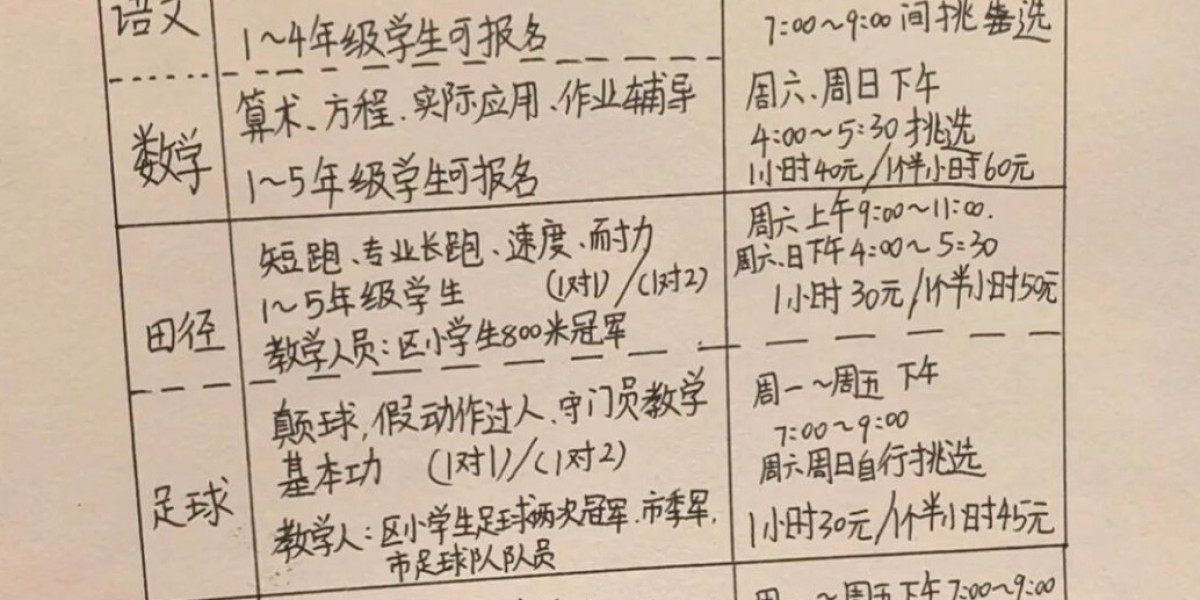 语文
1~4年级学生可报名
7:00~9:00间挑选
数学
算术、方程、实际应用、作业辅导
1~5年级学生可报名
周六、周日下午
4:00~5:30挑选
1小时40元/1个半小时60元
田径
短跑、专业长跑、速度、耐力
1~5年级学生 (1对1)/(1对2)
教学人员:区小学生800米冠军
周六上午9:00~11:00.
周六、日下午4:00~5:30
1小时30元/1个半小时50元
足球
颠球,假动作过人、守门员教学
基本功 (1对1)/(1对2)
教学人:区小学生足球两次冠军.市季军,
市足球队队员
周一~周五下午
7:00~9:00
周六周日自行挑选
1小时30元/1个半小时45元
~周五下午7:00~9:00